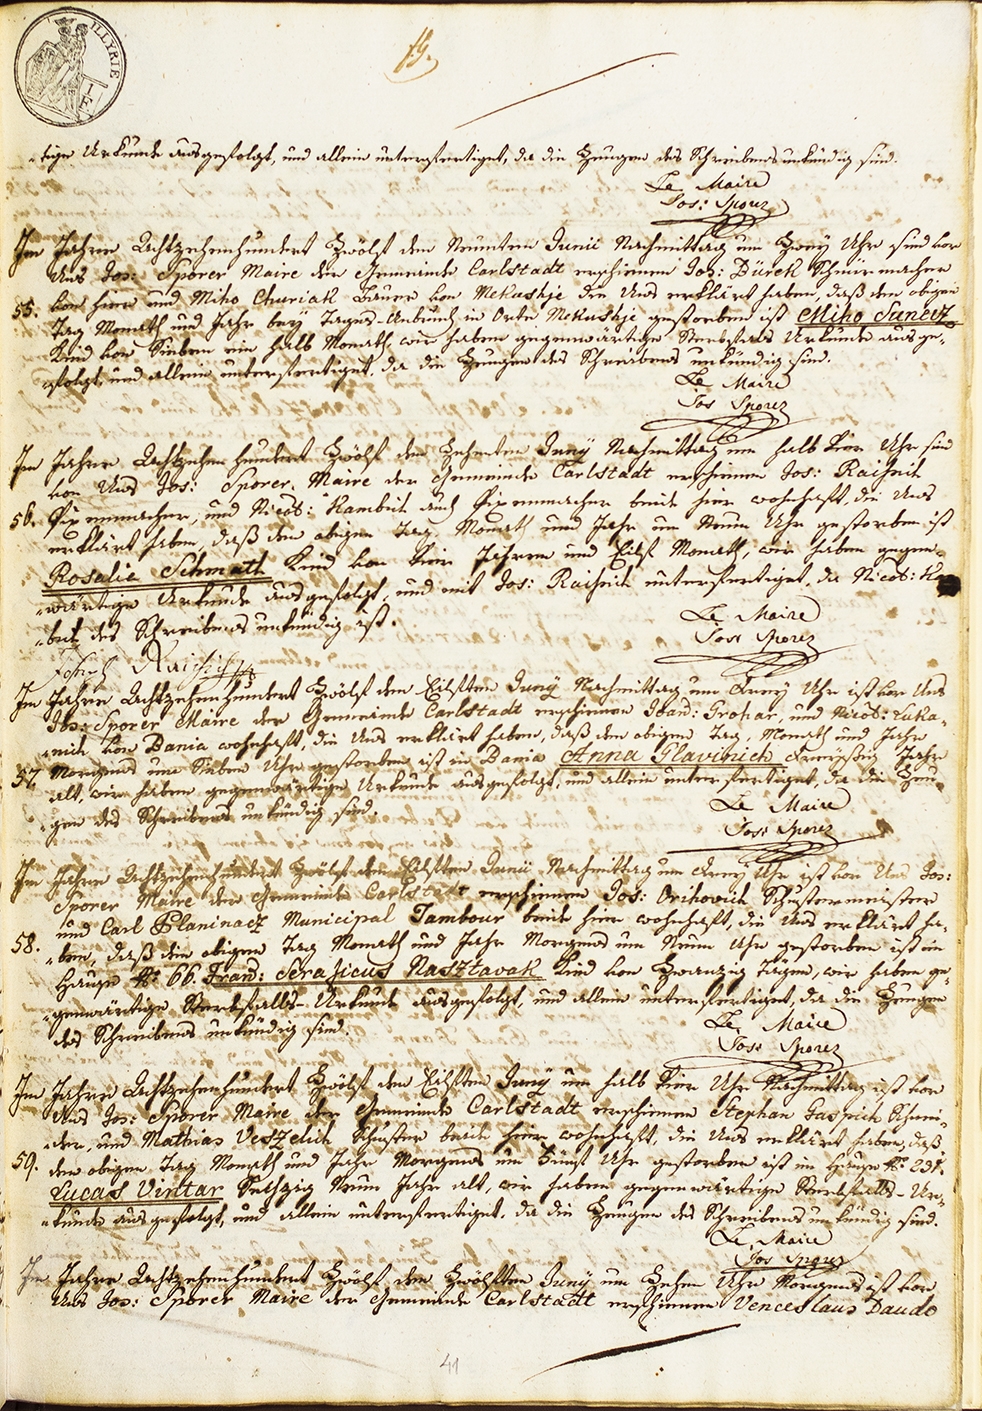 ILLYRIE
I E
19.
-tige Urkunde ausgefolgt, und allein unterfertiget, da die Zeugen des Schreibens unkündig sind.
Le Maire
Jos: Sporer
Im Jahre Achtzehenhundert Zwölf den Neunten Junii Nachmittag um Zwey Uhr sind vor
Uns Jos: Sporer Maire der Gemeinde Carlstadt erschienen Jos: Dürek Schnürmacher
55. von hier und Miho Churiak Bauer von Mekushje die Uns erklärt haben, daß den obigen
Tag Monath und Jahr bey Tages-Anbruch in Orte Mekushje gestorben ist Miho Sunecz
Kind von Sieben ein halb Monath, wir haben gegenwärtige Sterbfalls Urkunde ausge-
-folgt, und allein unterfertiget, da die Zeugen des Schreibens unkündig sind.
Le Maire
Jos Sporer
Im Jahre Achtzehenhundert Zwölf den Zehenten Juny Nachmittag um halb vier Uhr sind
vor Uns Jos: Sporer, Maire der Gemeinde Carlstadt erschienen Jos: Raisich
56. Pixenmacher, und Nicol: Kambich auch Pixenmacher beide hier wohnhaft, die Uns
erklärt haben, daß den obigen Tag, Monath und Jahr um Neun Uhr gestorben ist
Rosalia Schmoth Kind von vier Jahren und Eilf Monath, wir haben gegen-
-wärtige Urkunde ausgefolgt, und mit Jos: Raisich unterfertiget, da Nicol:
des Schreibens unkündig ist.
Le Maire
Jos: Sporer
Joseph Raisich
Im Jahre Achtzehenhundert Zwölf den Eilften Juny Nachmittag um Drey Uhr ist vor Uns
Jos: Sporer Maire der Gemeinde Carlstadt erschienen Joan: Grohar, und Nicol: Luka-
-nich von Bania wohnhaft, die Uns erklärt haben, daß den obigen Tag, Monath und Jahr
57. Morgens um Sieben Uhr gestorben ist in Bania Anna Glavinich Dreyßig Jahr
alt, wir haben gegenwärtige Urkunde ausgefolgt, und allein unterfertiget, da die Zeu-
-gen des Schreibens unkündig sind.
Le Maire
Jos: Sporer
Im Jahre Achtzehenhundert Zwölf den Eilften Junii Nachmittag um Drey Uhr ist vor Uns Jos:
Sporer Maire der Gemeinde Carlstadt erschienen Jos: Orihovich Schustermeister
und Carl Planinacz Municipal Tambour beide hier wohnhaft, die Uns erklärt ha-
58. -ben, daß den obigen Tag Monath und Jahr Morgens um Neun Uhr gestorben ist im
Hause No. 66. Fran: Seraficus Nasztavak Kind von Zwanzig Tägen, wir haben ge-
-genwärtige Sterbfalls-Urkunde ausgefolgt, und allein unterfertiget, da die Zeugen
des Schreibens unkündig sind.
Le Maire
Jos: Sporer
Im Jahre Achtzehenhundert Zwölf den Eilften Juny um halb vier Uhr Nachmittag ist vor
Uns Jos: Sporer Maire der Gemeinde Carlstadt erschienen Stephan Gasprich Schnei-
-der, und Mathias Veszelich Schuster beide hier wohnhaft, die Uns erklärt haben, daß
59. den obigen Tag Monath und Jahr Morgens um Fünf Uhr gestorben ist im Hause No. 231.
Lucas Vinttar Sechzig Neun Jahr alt, wir haben gegenwärtige Sterbfalls-Ur-
-kunde ausgefolgt, und allein unterfertiget, da die Zeugen des Schreibens unkündig sind.
Le Maire
Jos Sporer
Im Jahre Achtzehenhundert Zwölf den Zwölften Juny um Zehn Uhr Morgens ist vor
Uns Jos: Sporer Maire der Gemeinde Carlstadt erschienen Venceslaus Daudo
41